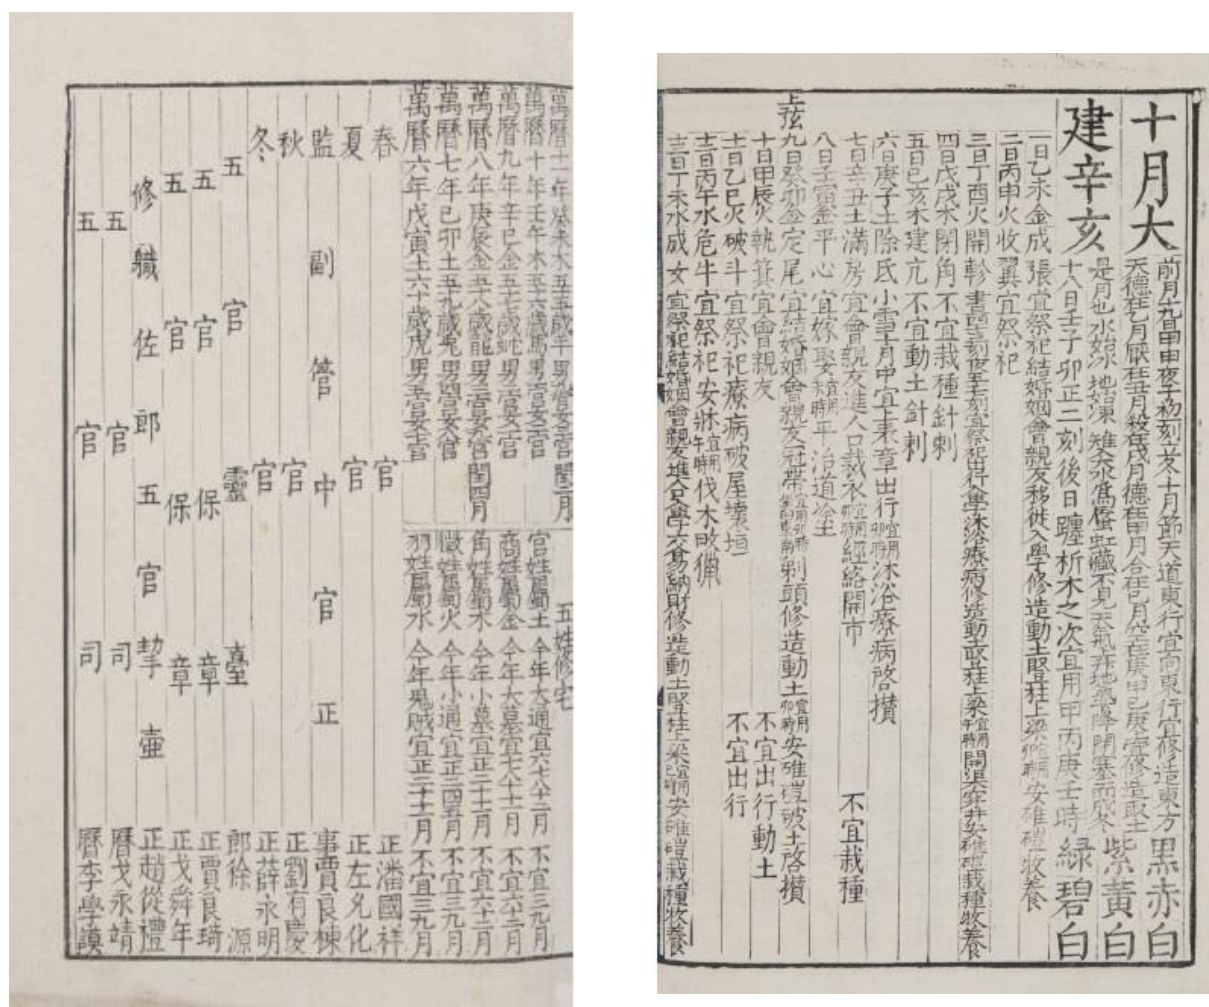 十月大
建辛亥
天德在乙月厭在丑月殺在戌月德在甲月合在己月空在庚甲己庚上宜修造取土
是月也水始冰地始凍雉入大水爲蜃虹藏不見天氣上升地氣下降閉塞而成冬
十八日壬子卯正二刻後日躔析木之次宜用甲丙庚壬時
黑赤白
紫黃白
綠碧白
一日乙未金成張宜祭祀結婚姻會親友移徙入學修造動土竪柱上梁安碓磑牧養
二日丙申火收翼宜祭祀
三日丁酉火開軫
四日戊戌木閉角不宜栽種針刺
五日己亥木建亢不宜動土針刺
六日庚子土除氐小雪十月中宜上表章出行沐浴療病啓攢
七日辛丑土滿房宜會親友進人口裁衣經絡開市 不宜栽種
八日壬寅金平心宜嫁娶平治道塗
上弦
九日癸卯金定尾宜結婚姻會親友冠帶剃頭修造動土安碓磑破土啓攢
十日甲辰火執箕宜會親友 不宜出行動土
十一日乙巳火破斗宜祭祀療病破屋壞垣 不宜出行
十二日丙午水危牛宜祭祀安牀伐木畋獵
十三日丁未水成女宜祭祀結婚姻會親友進人口入學交易納財修造動土竪柱上梁安碓磑栽種牧養
萬曆十一年癸未木五十五歲羊男宮女宮閏二月
萬曆十年壬午木五十六歲馬男宮女宮
萬曆九年辛巳金五十七歲蛇男宮女宮
萬曆八年庚辰金五十八歲龍男宮女宮閏四月
萬曆七年己卯土五十九歲兔男宮女宮
萬曆六年戊寅土六十歲虎男宮女宮
五姓修宅
宮姓屬土今年大通宜六七八十二月不宜三九月
商姓屬金今年大墓宜七八十二月不宜六十二月
角姓屬木今年小墓宜正二十二月不宜六十二月
徵姓屬火今年小通宜正二四五月不宜三九月
羽姓屬水今年鬼賊宜正二十二月不宜三九月
春官正潘國祥
夏官正左允化
監副管中官正事賈良棟
秋官正劉有慶
冬官正薛永明
五官靈臺郎徐源
五官保章正賈良琦
五官保章正戈舜年
修職佐郎五官挈壺正趙從禮
五官司曆戈永靖
五官司曆李學謨